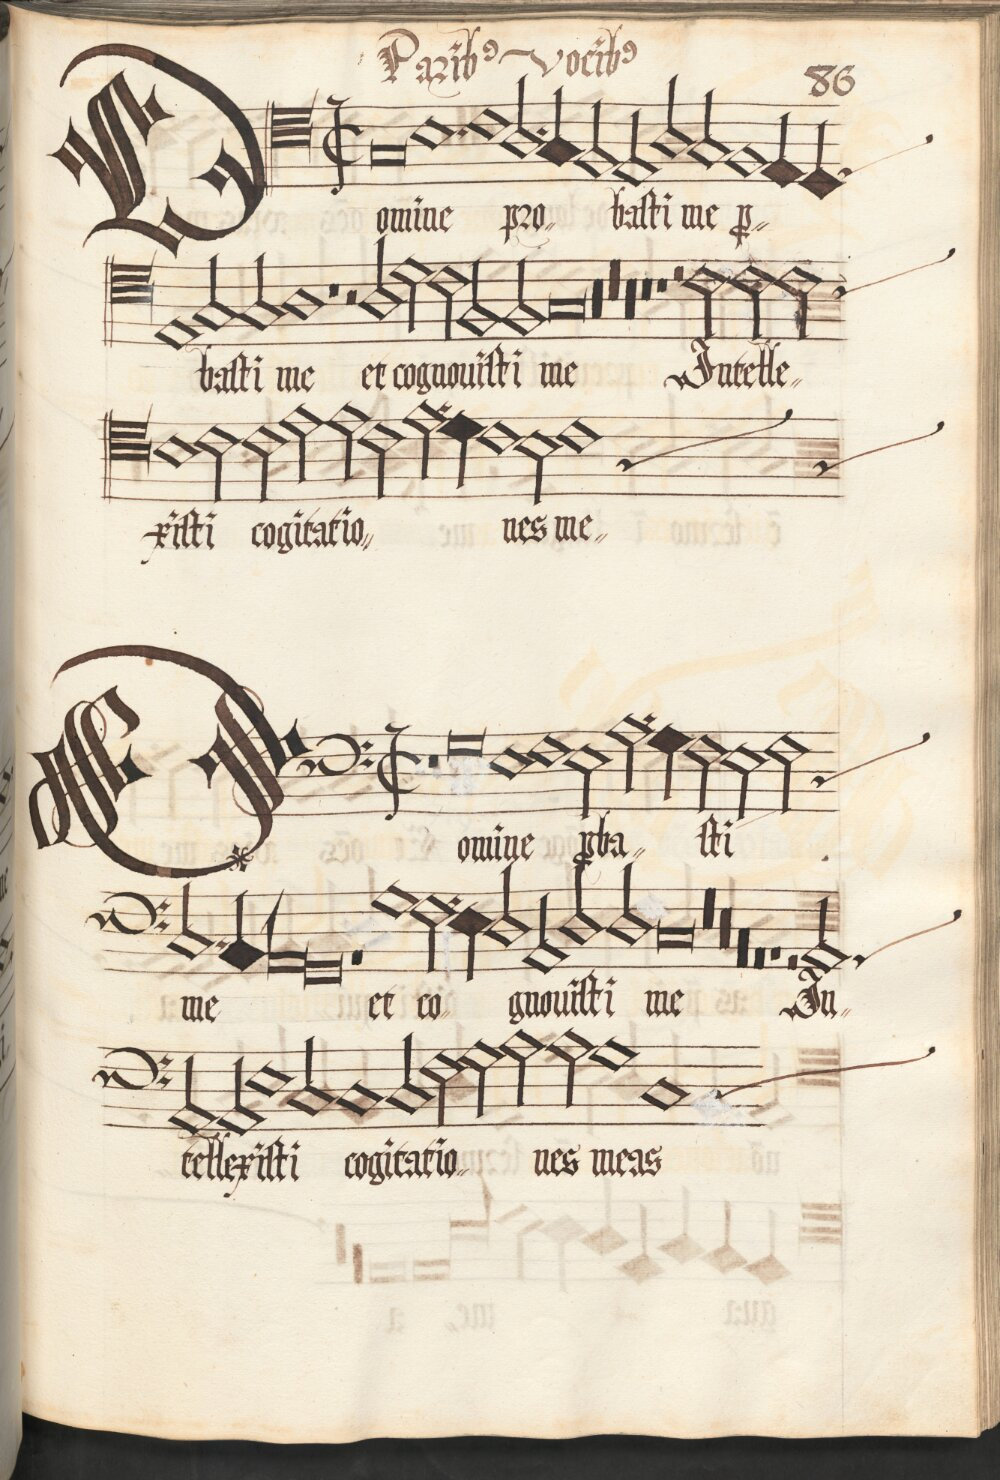 Paribꝰ Vocibꝰ
86
Domine pro〃 basti me ꝓ〃
basti me et cognouisti me Intelle〃
xisti cogitatio〃 nes me〃
Domine ꝓba〃 sti
me et co〃 gnouisti me In〃
tellexisti cogitatio〃 nes meas